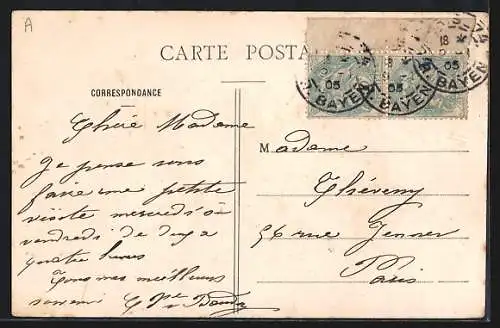 A
CARTE POSTA
18
05
R. BAYEN
05
BAYEN
05
BAYEN
CORRESPONDANCE
Chère Madame
Je pense vous
faire une petite
visite mercredi ou
vendredi de deux a
quatre heures
Tous mes meilleurs
Madame
Théveny
56 rue Jenner
Paris